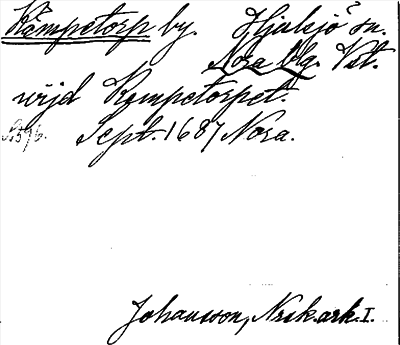 Kämpetorp by. Hjulsjö sn.
Nora blg. Vst.
wijd Kempetorpet.
Sept. 1687 Nora.
Johansson, Nrsk.ark. I.